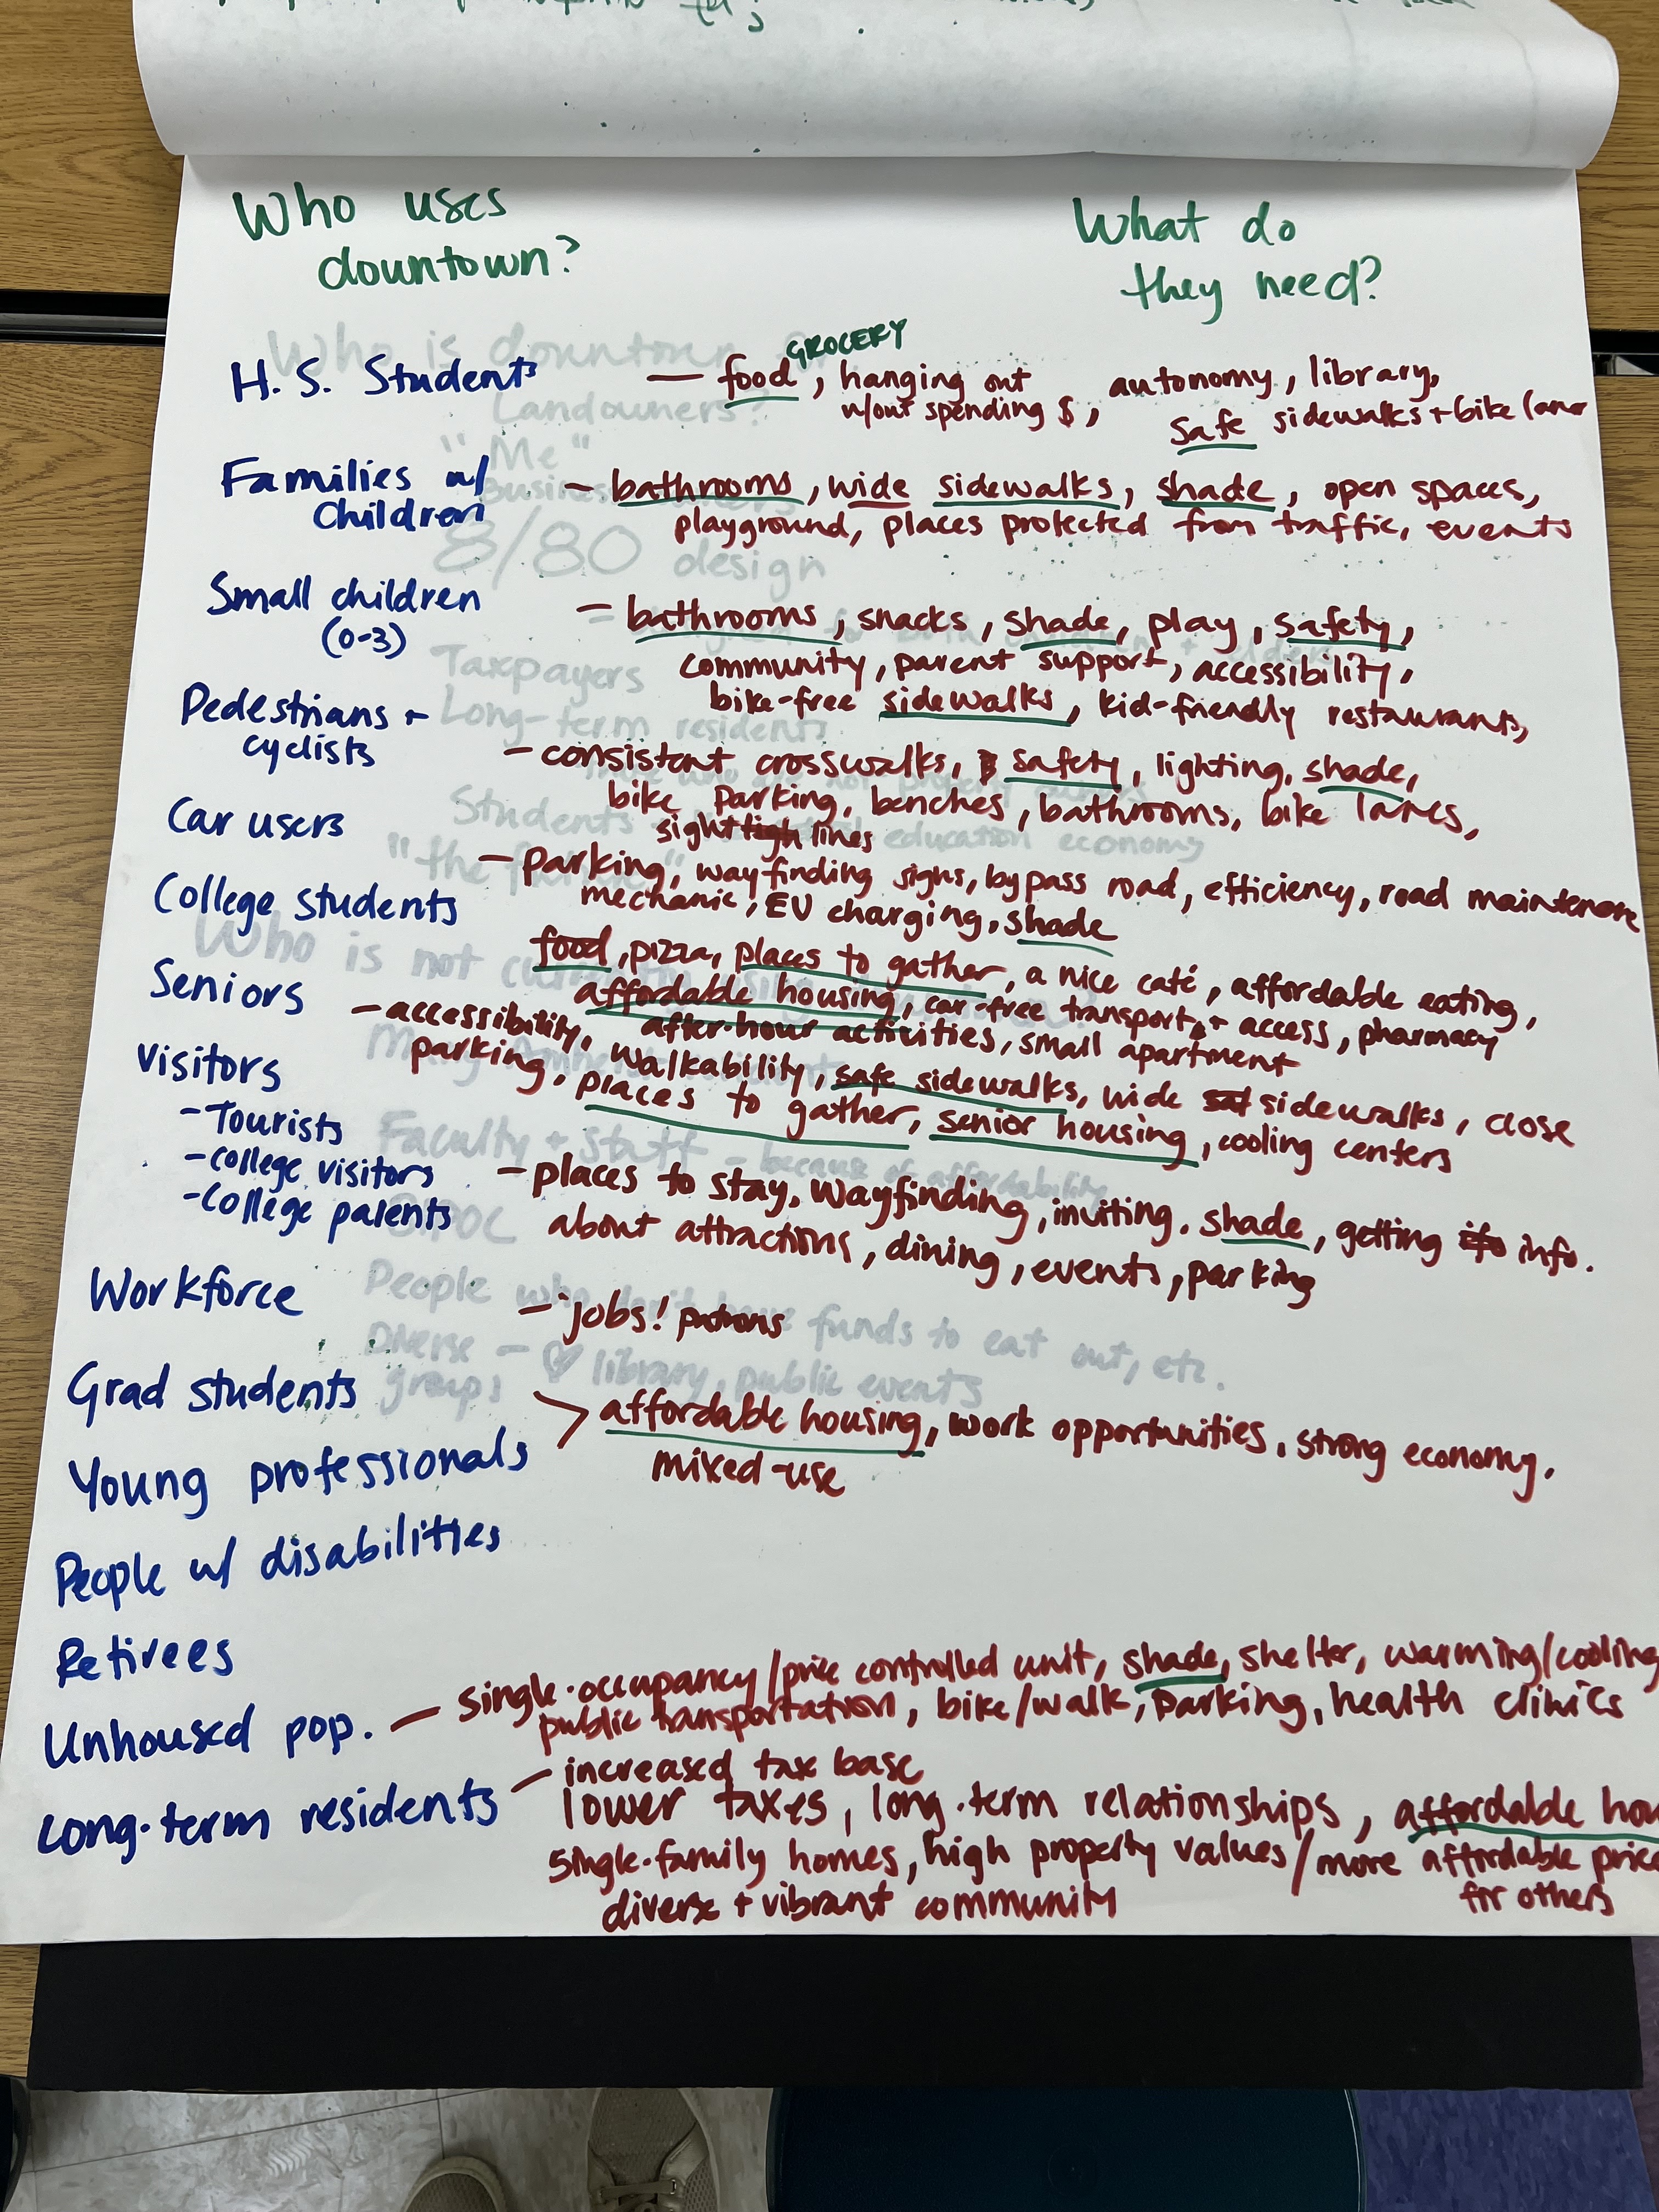 Who uses
downtown?
What do
they need?
H. S. Students
GROCERY
— food, hanging out
w/out spending $, autonomy, library,
safe sidewalks + bike lanes
Families w/
Children
— bathrooms, wide sidewalks, shade, open spaces,
playground, places protected from traffic, events
Small children
(0-3)
— bathrooms, snacks, shade, play, safety,
community, parent support, accessibility,
bike-free sidewalks, kid-friendly restaurants,
Pedestrians +
cyclists
— consistent crosswalks, safety, lighting, shade,
bike parking, benches, bathrooms, bike lanes,
sight lines
Car users
— parking, wayfinding signs, bypass road, efficiency, road maintenance
mechanic, EV charging, shade
College students
food, pizza, places to gather, a nice café, affordable eating,
affordable housing, car-free transport + access, pharmacy
after-hour activities, small apartment
Seniors
— accessibility, walkability, safe sidewalks, wide sidewalks, close
parking, places to gather, senior housing, cooling centers
Visitors
- Tourists
- college visitors
- College parents
— places to stay, wayfinding, inviting, shade, getting info.
about attractions, dining, events, parking
Workforce
— jobs! patrons
Grad students
Young professionals
> affordable housing, work opportunities, strong economy,
mixed-use
People w/ disabilities
Retirees
Unhoused pop.
— single-occupancy/price controlled unit, shade, shelter, warming/cooling
public transportation, bike/walk, parking, health clinics
Long-term residents
— increased tax base
lower taxes, long-term relationships, affordable hou
single-family homes, high property values/more affordable price
for others
diverse + vibrant community
Who is downtown
Landowners?
"Me"
8/80 design
Taxpayers
Long-term residents
Students
education economy
Who is not
Faculty + staff - because of affordability
BIPOC
People who don't have funds to eat out, etc.
Diverse — ♡ library, public events
groups